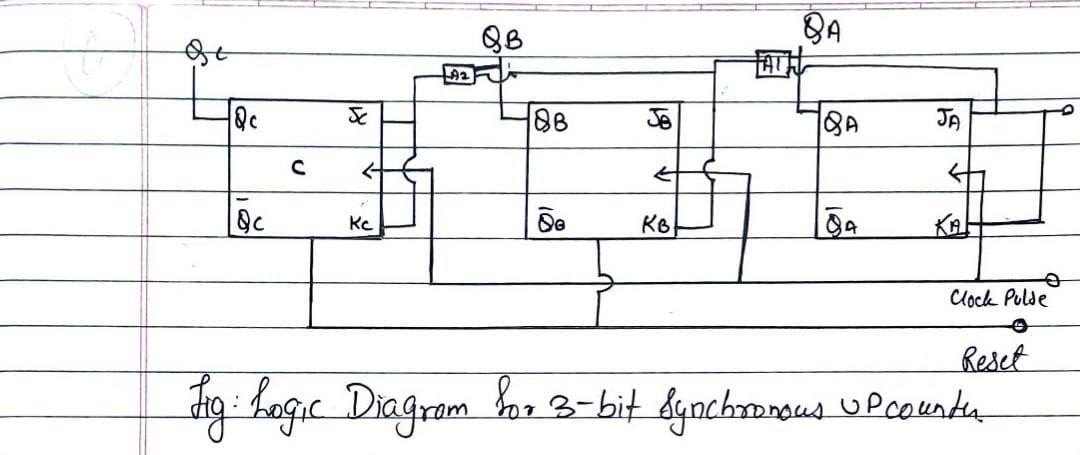 QC QB QA
A2 A1
QC JC QB JB QA JA
C
Q̄C KC Q̄B KB Q̄A KA
Clock Pulse
Reset
Fig: Logic Diagram for 3-bit Synchronous UP counter